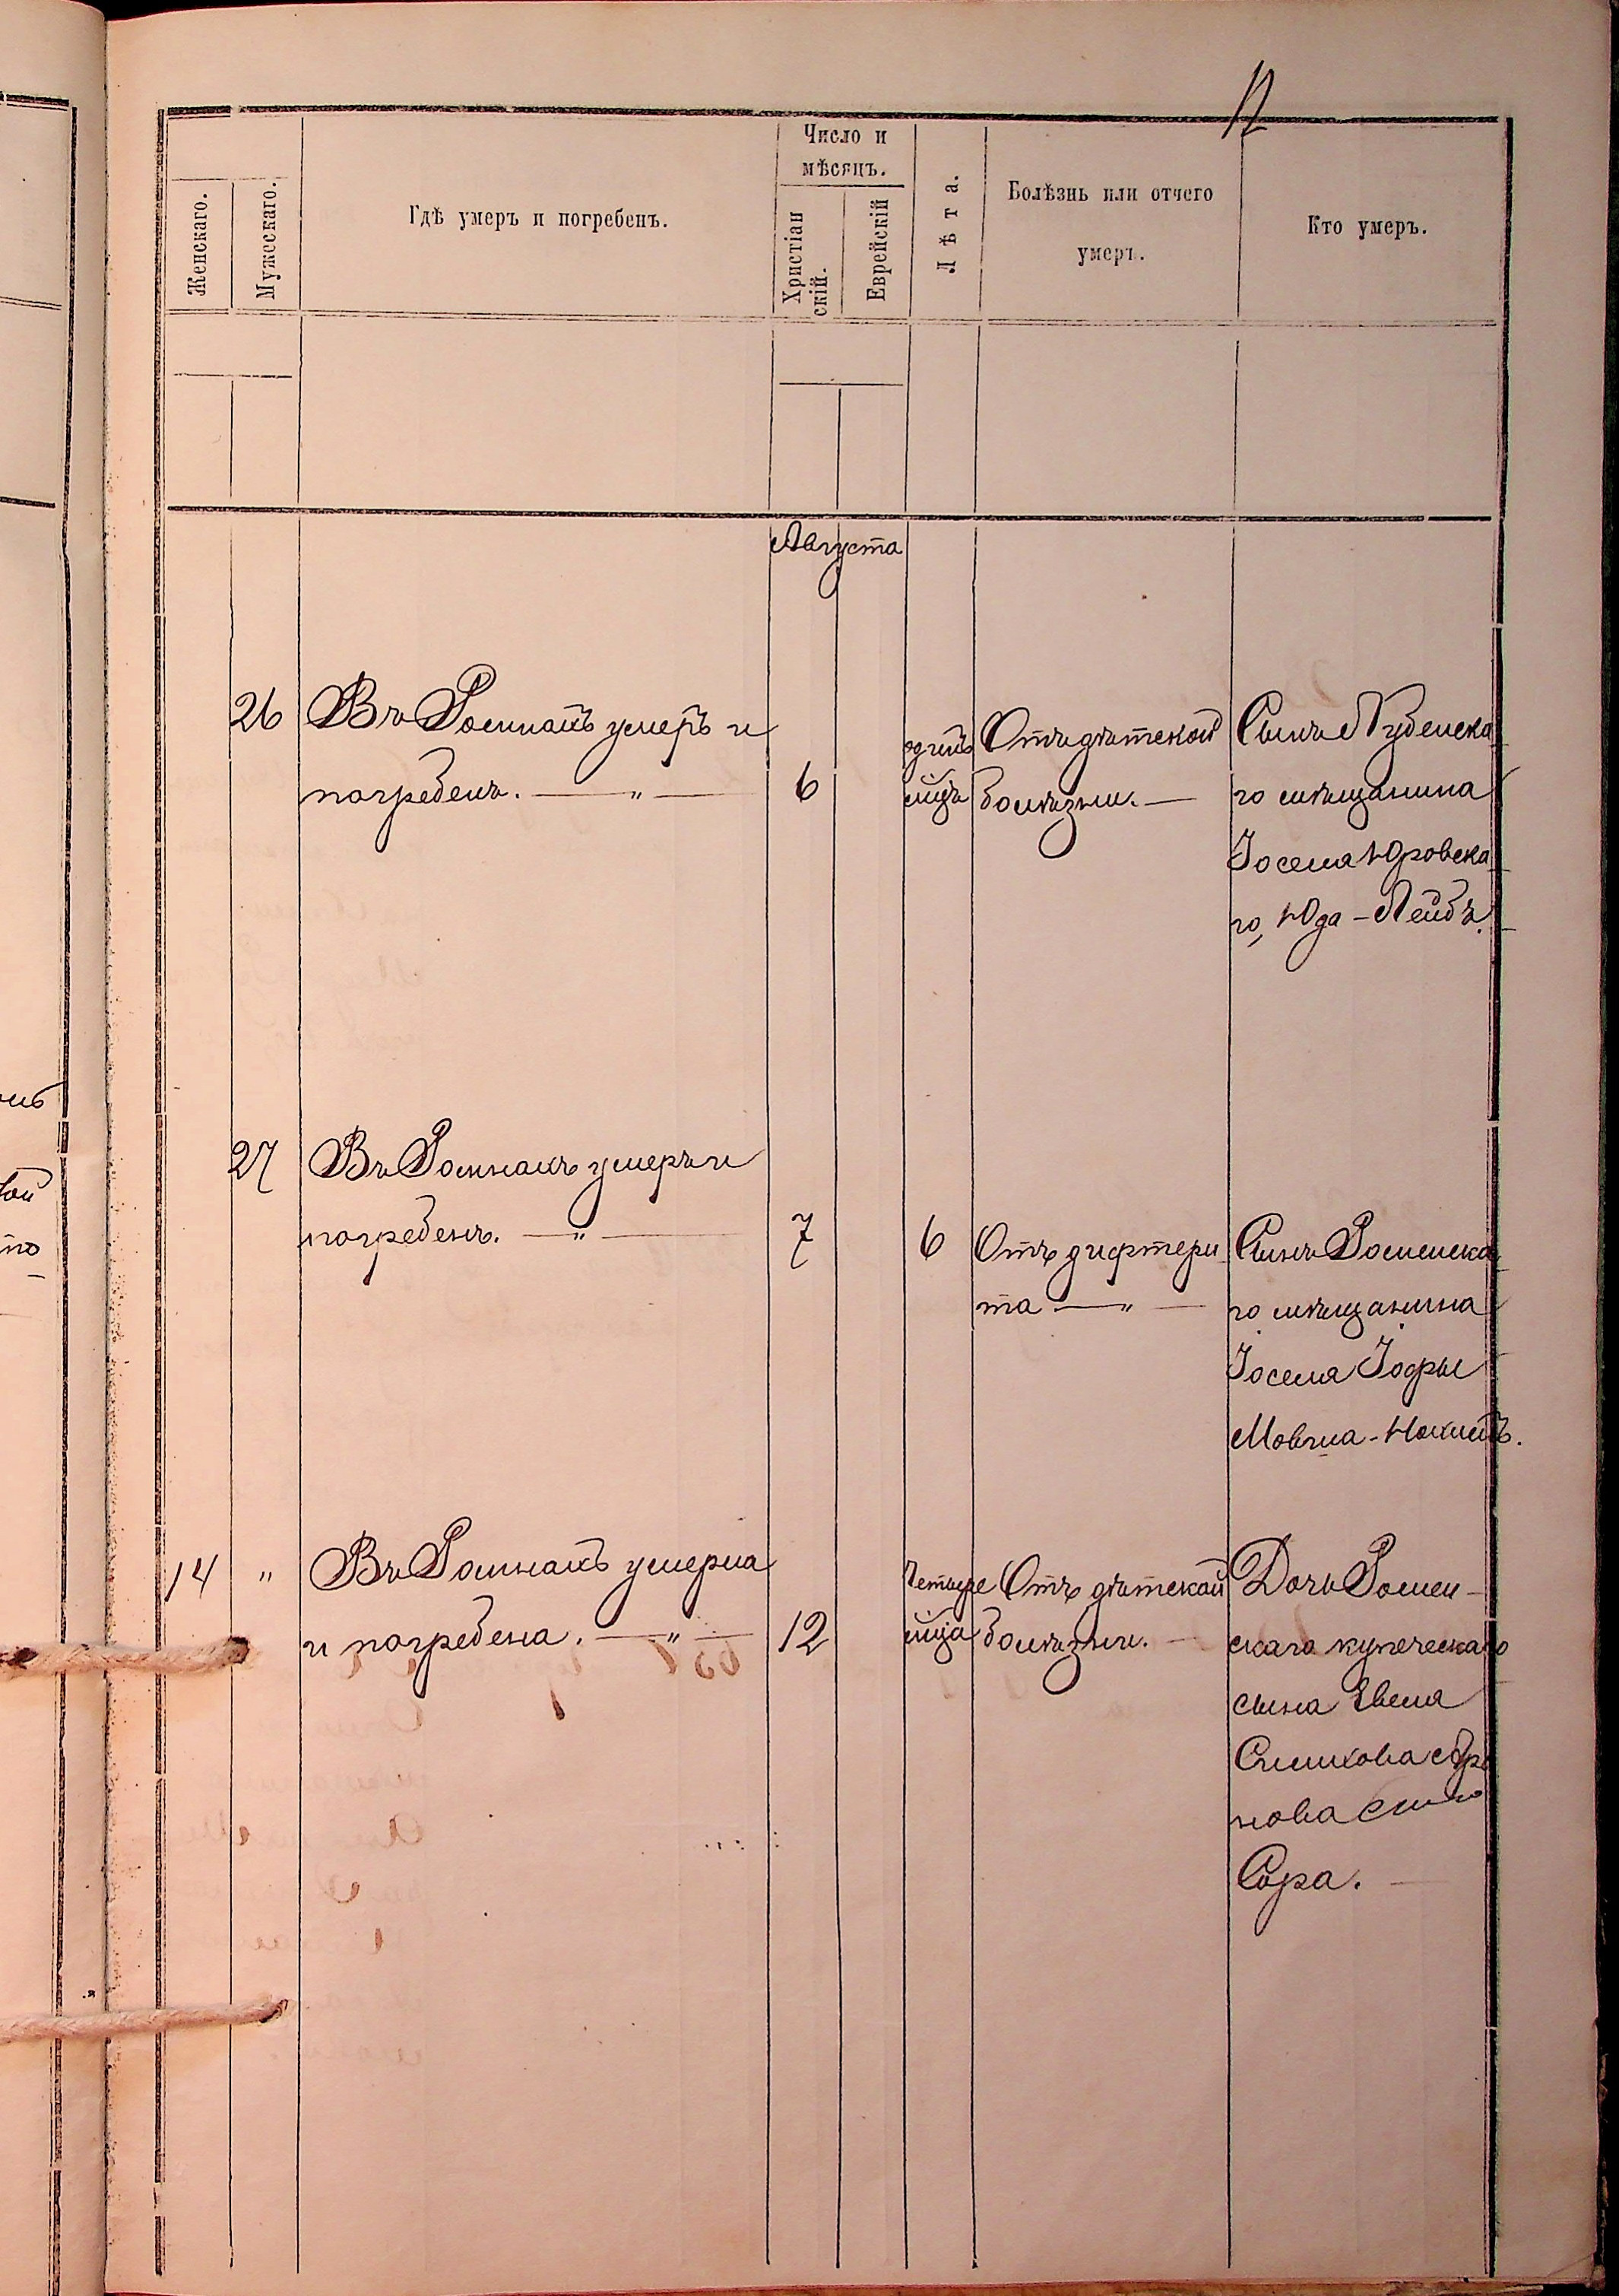 12
Женскаго.
Мужескаго.
Гдѣ умеръ и погребенъ.
Число и
мѣсяцъ.
Христіан
скій.
Еврейскій
Лѣта.
Болѣзнь или отчего
умеръ.
Кто умеръ.
Августа
26
Въ Ромнахъ умеръ и
погребенъ. — " —
6
одинъ
мцъ
Отъ дѣтской
болѣзни. —
Сынъ Лубенска
го мѣщанина
Іоселя Юровска
го, Юда-Лейбъ.
27
Въ Ромнахъ умеръ и
погребенъ. — " —
7
6
Отъ дифтери
та — " —
Сынъ Роменска
го мѣщанина
Іоселя Іофы
Мовша
14
"
Въ Ромнахъ умерла
и погребена. — " —
12
Четыре
мца
Отъ дѣтской
болѣзни. —
Дочь Ромен-
скаго купеческаго
сына
нова
Сора. —